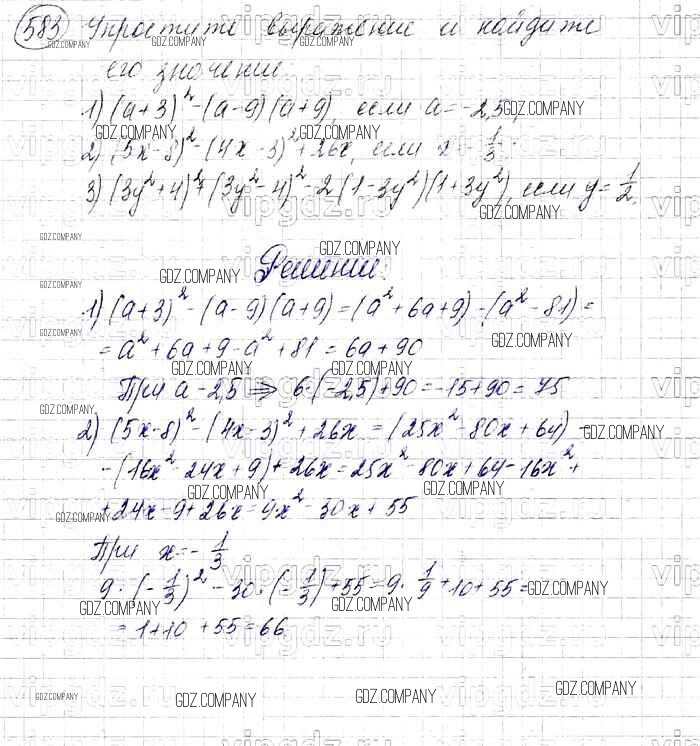 583 Упростите выражение и найдите
его значение
1) (a+3)² - (a-9)(a+9), если a = -2,5
2) (5x-8)² - (4x-3)² + 26x, если x = -1/3
3) (3y²+4)² + (3y²-4)² - 2(1-3y²)(1+3y²), если y = 1/2.
Решение.
1) (a+3)² - (a-9)(a+9) = (a² + 6a + 9) - (a² - 81) =
= a² + 6a + 9 - a² + 81 = 6a + 90
При a - 2,5 ⇒ 6·(-2,5) + 90 = -15 + 90 = 75
2) (5x-8)² - (4x-3)² + 26x = (25x² - 80x + 64) -
- (16x² - 24x + 9) + 26x = 25x² - 80x + 64 - 16x² +
+ 24x - 9 + 26x = 9x² - 30x + 55
При x = -1/3
9·(-1/3)² - 30·(-1/3) + 55 = 9·1/9 + 10 + 55 =
= 1 + 10 + 55 = 66